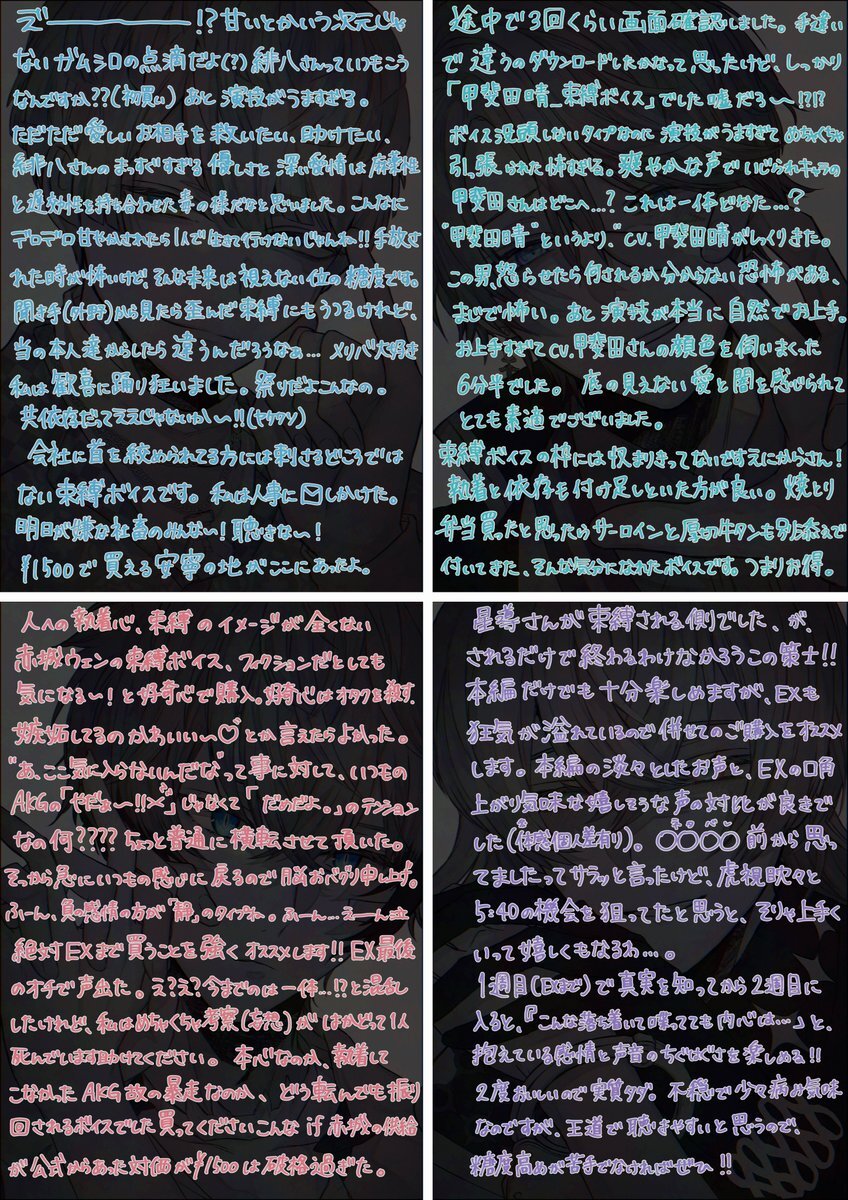 え゛ーーーーーー!?甘いとかいう次元じゃ
ないガムシロの点滴だよ(?)緋八さんっていつもこう
なんですか??(初買い) あと演技がうますぎる。
ただただ愛しいお相手を救いたい、助けたい、
緋八さんのまっすぐすぎる優しさと深い愛情は麻薬性
と遅効性を持ち合わせた毒の様だなと思いました。こんなに
デロデロ甘やかされたら1人で生きて行けないじゃんね!!手放さ
れた時が怖いけど、そんな未来は視えない位の糖度です。
聞き手(外野)から見たら歪んだ束縛にもうつるけれど、
当の本人達からしたら違うんだろうなぁ… メリバ大好き
私は歓喜に踊り狂いました。祭りだよこんなの。
共依存だってええじゃないか〜!!(ヤケクソ)
会社に首を絞められてる方には刺さるどころでは
ない束縛ボイスです。私は人事に✉しかけた。
明日が嫌な社畜のみんな!聴きな〜!
¥1500で買える安寧の地がここにあったよ。
途中で3回くらい画面確認しました。手違い
で違うのダウンロードしたかなって思ったけど、しっかり
「甲斐田晴_束縛ボイス」でした嘘だろ〜!?!?
ボイス没頭しないタイプなのに演技がうますぎてめちゃくちゃ
引っ張られた怖すぎる。爽やかな声でいじられキャラの
甲斐田さんはどこへ…?これは一体どなた…?
"甲斐田晴"というより、"cv.甲斐田晴"がしっくりきた。
この男、怒らせたら何されるか分からない恐怖がある、
まじで怖い。あと演技が本当に自然でお上手。
お上手すぎてcv.甲斐田さんの顔色を伺いまくった
6分半でした。底の見えない愛と闇を感じられて
とても素適でございました。
束縛ボイスの枠には収まりきってないですえにからさん!
執着と依存も付け足しといた方が良い。焼とり
弁当買ったと思ったらサーロインと厚切牛タンも別添えで
付いてきた、そんな気分になれたボイスです。つまりお得。
人への執着心、束縛のイメージが全くない
赤城ウェンの束縛ボイス、フィクションだとしても
気になる〜!と好奇心で購入。好奇心はオタクを殺す。
嫉妬してるのかわいい〜♡とか言えたらよかった。
"あ、ここ気に入らないんだな"って事に対して、いつもの
AKGの「やだぁ〜!!×」じゃなくて「だめだよ。」のテンション
なの何????ちょっと普通に横転させて頂いた。
そっから急にいつもの感じに戻るので脳がバグり申し上げ。
ふーん、負の感情の方が「静」のタイプね。ふーん…えーん
絶対EXまで買うことを強くオススメします!!EX最後
のオチで声出た。え?え?今までのは一体…!?と混乱
したけれど、私はめちゃくちゃ考察(妄想)がはかどって1人
死んでいます助けてください。本心なのか、執着して
こなかったAKG故の暴走なのか、どう転んでも振り
回されるボイスでした買ってくださいこんなif赤城の供給
が公式からあった対価が¥1500は破格過ぎた。
星導さんが束縛される側でした、が、
されるだけで終わるわけなかろうこの策士!!
本編だけでも十分楽しめますが、EXも
狂気が溢れているので併せてのご購入をオススメ
します。本編の淡々としたお声と、EXの口角
上がり気味な嬉しそうな声の対比が良きで
した(体感個人差有り)。〇〇〇〇前から思っ
ネタバレ
てましたってサラッと言ったけど、虎視眈々と
5:40の機会を狙ってたと思うと、そりゃ上手く
いって嬉しくもなるわ…。
1週目(EXまで)で真実を知ってから2週目に
入ると、『こんな落ち着いて喋ってても内心は…』と、
抱えている感情と声音のちぐはぐさを楽しめる!!
2度おいしいので実質タダ。不穏で少々病み気味
なのですが、王道で聴きやすいと思うので、
糖度高めが苦手でなければぜひ!!